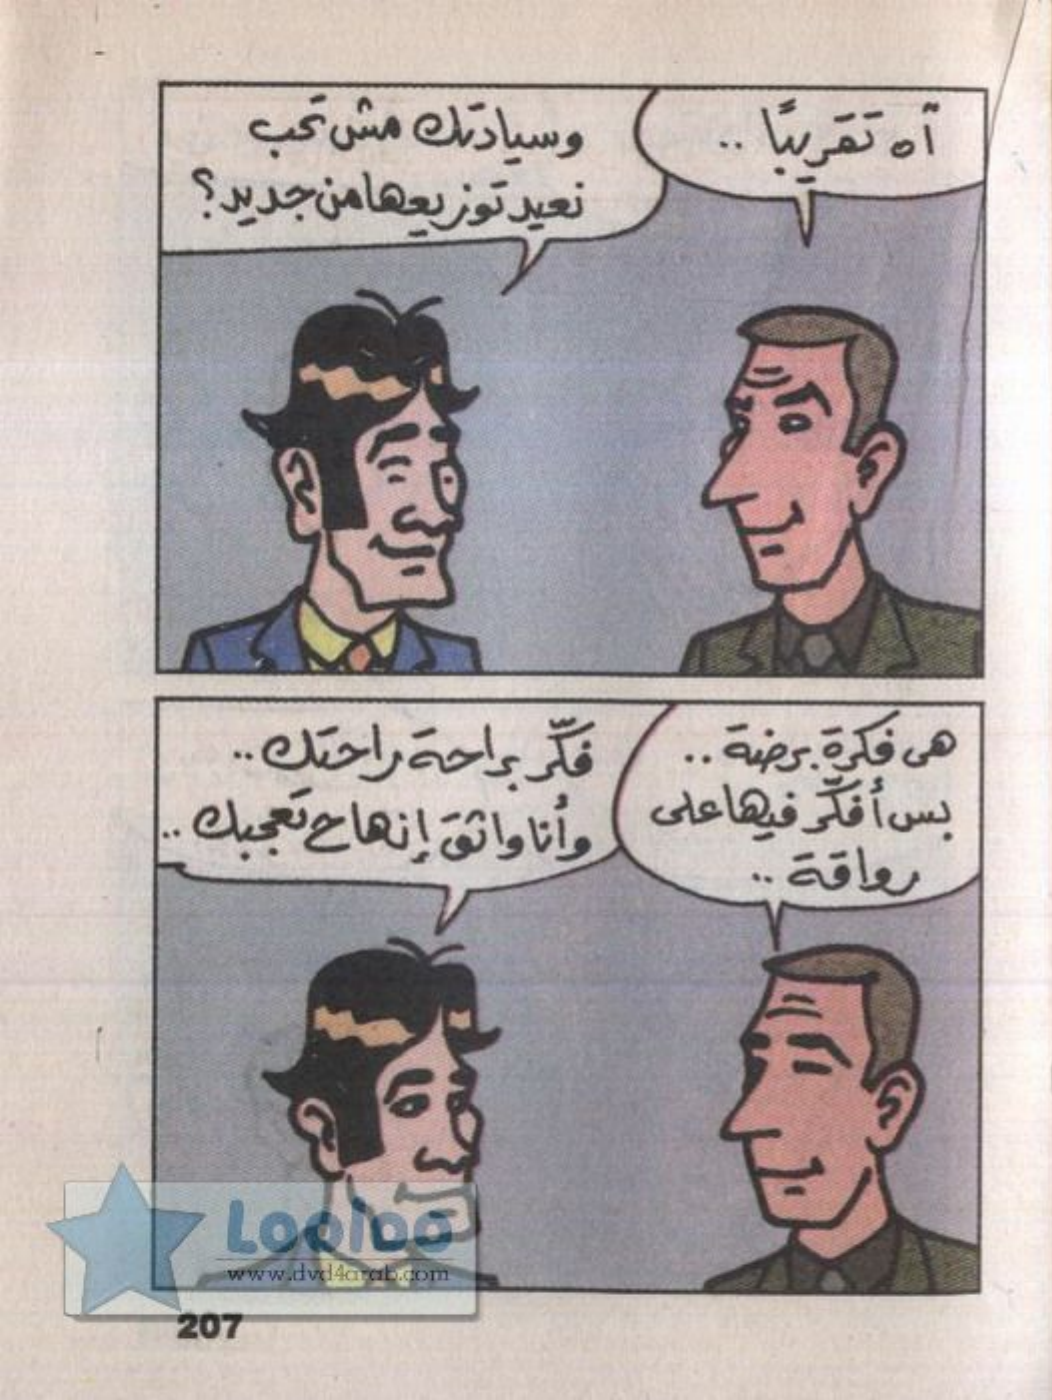 آه تَقَريبًا ..
وسيادتك مش تحب
نعيد توزيعها من جديد؟
هى فكرة برضة ..
بس أفكّر فيها على
رواقة ..
فكّر براحة راحتك ..
وأنا واثق إنها ح تعجبك ..
Looloo
www.dvd4arab.com
207